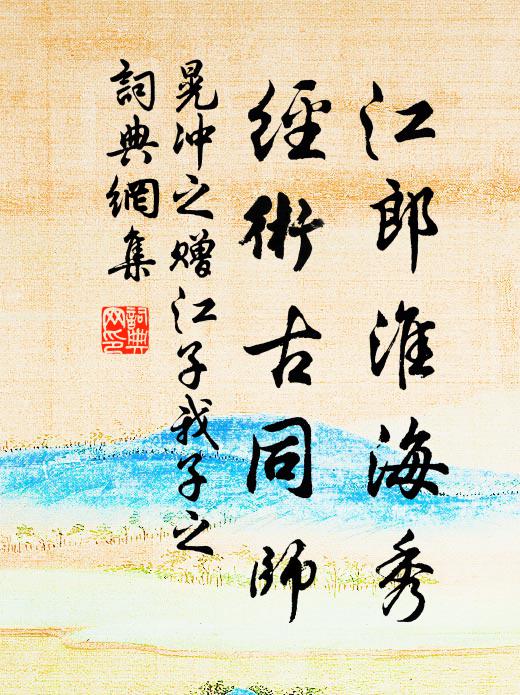 江郎淮海秀
經術古同師
晁沖之贈江子我子之
詞典網集
詞典网印